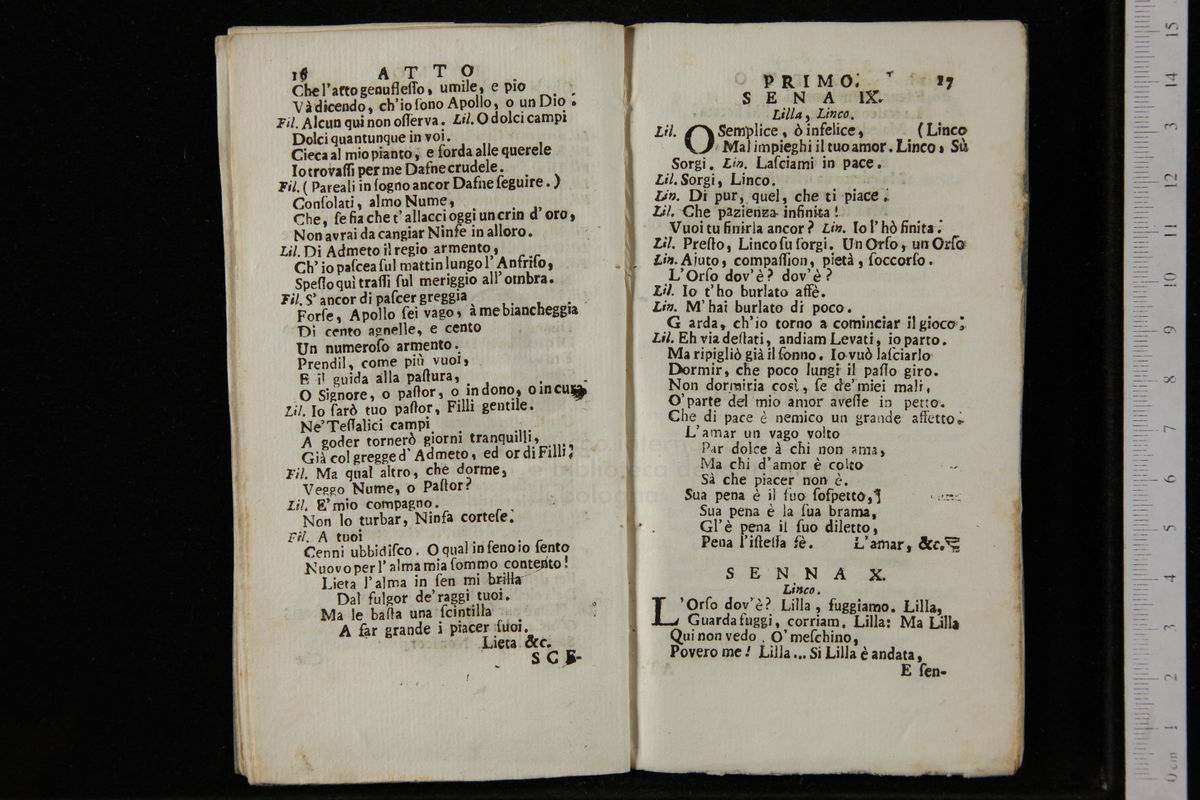 16 ATTO
Che l'atto genufleſſo, umile, e pio
Và dicendo, ch'io ſono Apollo, o un Dio.
Fil. Alcun qui non oſſerva. Lil. O dolci campi
Dolci quantunque in voi.
Cieca al mio pianto, e ſorda alle querele
Io trovaſſi per me Dafne crudele.
Fil. ( Pareali in ſogno ancor Dafne ſeguire. )
Conſolati, almo Nume,
Che, ſe fia che t'allacci oggi un crin d'oro,
Non avrai da cangiar Ninfe in alloro.
Lil. Di Admeto il regio armento,
Ch'io paſcea ſul mattin lungo l'Anfriſo,
Speſſo quì traſſi ſul meriggio all'ombra.
Fil. S'ancor di paſcer greggia
Forſe, Apollo ſei vago, à me biancheggia
Di cento agnelle, e cento
Un numeroſo armento.
Prendil, come più vuoi,
E il guida alla paſtura,
O Signore, o paſtor, o in dono, o in cura.
Lil. Io farò tuo paſtor, Filli gentile.
Ne'Teſſalici campi
A goder tornerò giorni tranquilli,
Già col gregge d'Admeto, ed or di Filli;
Fil. Ma qual altro, che dorme,
Veggo Nume, o Paſtor?
Lil. E'mio compagno.
Non lo turbar, Ninfa corteſe.
Fil. A tuoi
Cenni ubbidiſco. O qual in ſeno io ſento
Nuovo per l'alma mia ſommo contento!
Lieta l'alma in ſen mi brilla
Dal fulgor de'raggi tuoi.
Ma le baſta una ſcintilla
A far grande i piacer ſuoi.
Lieta &c.
SCE-
PRIMO. 17
SENA IX.
Lilla, Linco.
Lil. O Semplice, ò infelice, (Linco
Mal impieghi il tuo amor. Linco, Sù
Sorgi. Lin. Laſciami in pace.
Lil. Sorgi, Linco.
Lin. Di pur, quel, che ti piace.
Lil. Che pazienza infinita!
Vuoi tu finirla ancor? Lin. Io l'hò finita.
Lil. Preſto, Linco ſu ſorgi. Un Orſo, un Orſo
Lin. Ajuto, compaſſion, pietà, ſoccorſo.
L'Orſo dov'è? dov'è?
Lil. Io t'ho burlato affè.
Lin. M'hai burlato di poco.
G arda, ch'io torno a cominciar il gioco.
Lil. Eh via deſtati, andiam Levati, io parto.
Ma ripigliò già il ſonno. Io vuò laſciarlo
Dormir, che poco lungi il paſſo giro.
Non dormiria così, ſe de'miei mali,
O'parte del mio amor aveſſe in petto.
Che di pace è nemico un grande affetto.
L'amar un vago volto
Par dolce à chi non ama,
Ma chi d'amor è colto
Sà che piacer non è.
Sua pena è il ſuo ſoſpetto,
Sua pena è la ſua brama,
Gl'è pena il ſuo diletto,
Pena l'iſteſſa fè. L'amar, &c.
SENNA X.
Linco.
L'Orſo dov'è? Lilla, fuggiamo. Lilla,
Guarda fuggi, corriam. Lilla: Ma Lilla
Qui non vedo. O'meſchino,
Povero me! Lilla... Si Lilla è andata,
E ſen-